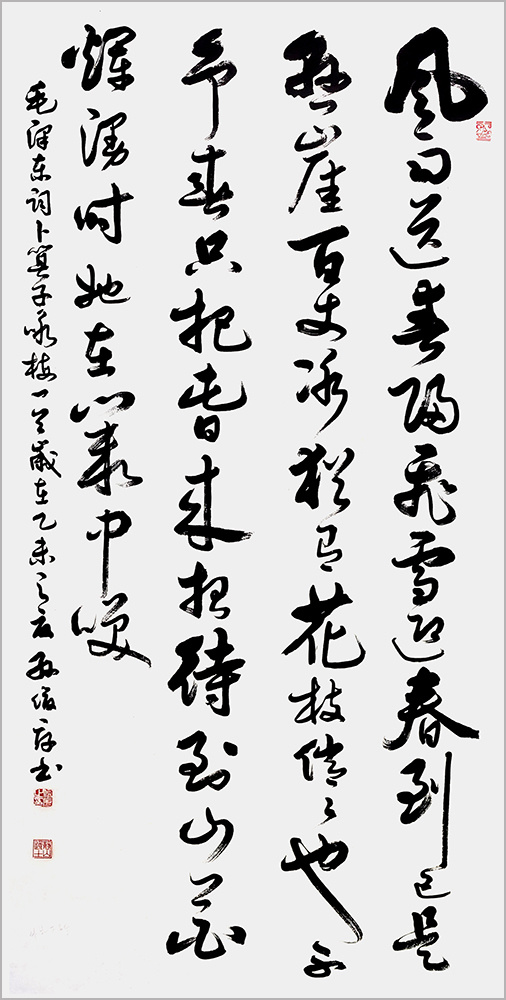 风雨送春归飞雪迎春到已是
悬崖百丈冰犹有花枝俏々也不
争春只把春来报待到山花
烂漫时她在丛中笑
毛泽东词卜算子咏梅一首岁在乙未之夏孙俊书